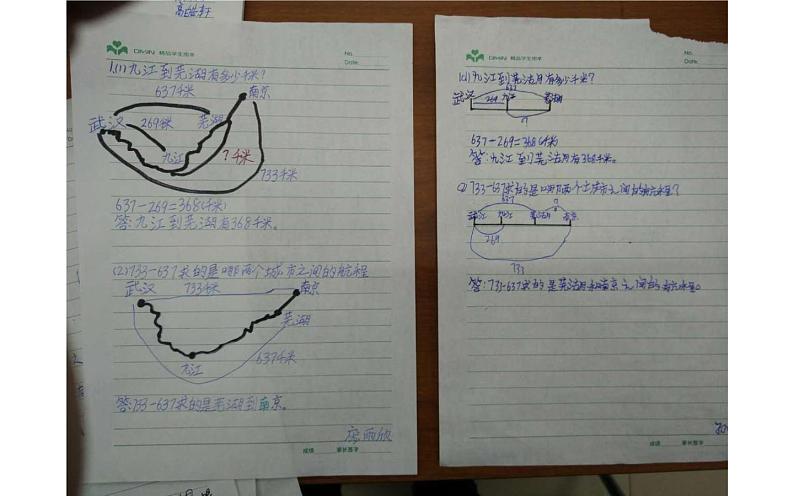 高皓轩
精品学生用本
No.
Date:
1.(1)九江到芜湖有多少千米?
637千米
南京
武汉 269千米 芜湖
九江
?千米
733千米
637-269=368(千米)
答:九江到芜湖有368千米。
(2)733-637求的是哪两个城市之间的航程
武汉 733千米 南京
芜湖
九江
637千米
答:733-637求的是芜湖到南京。
成绩 家长签字
精品学生用本
No.
Date:
(1)九江到芜湖有多少千米?
637
武汉 269 九江 芜湖
?
637-269=368(千米)
答:九江到芜湖有368千米。
(2)733-637求的是哪两个城市之间的航程?
637 ?
武汉 九江 芜湖 南京
269
733
答:733-637求的是芜湖和南京之间的航程。
成绩 家长签字